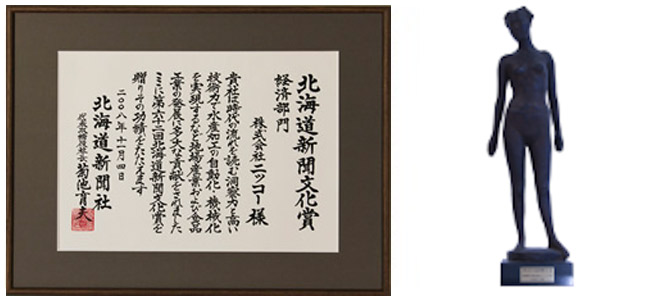 北海道新聞文化賞
経済部門
株式会社ニッコー様
貴社は時代の流れを読む洞察力と高い
技術力で水産加工の自動化、機械化
を実現するなど地場産業および食品
工業の発展に多大な貢献をされました
ここに第六十二回北海道新聞文化賞を
贈りその功績をたたえます
二〇〇八年十一月四日
北海道新聞社
代表取締役社長 菊池育夫